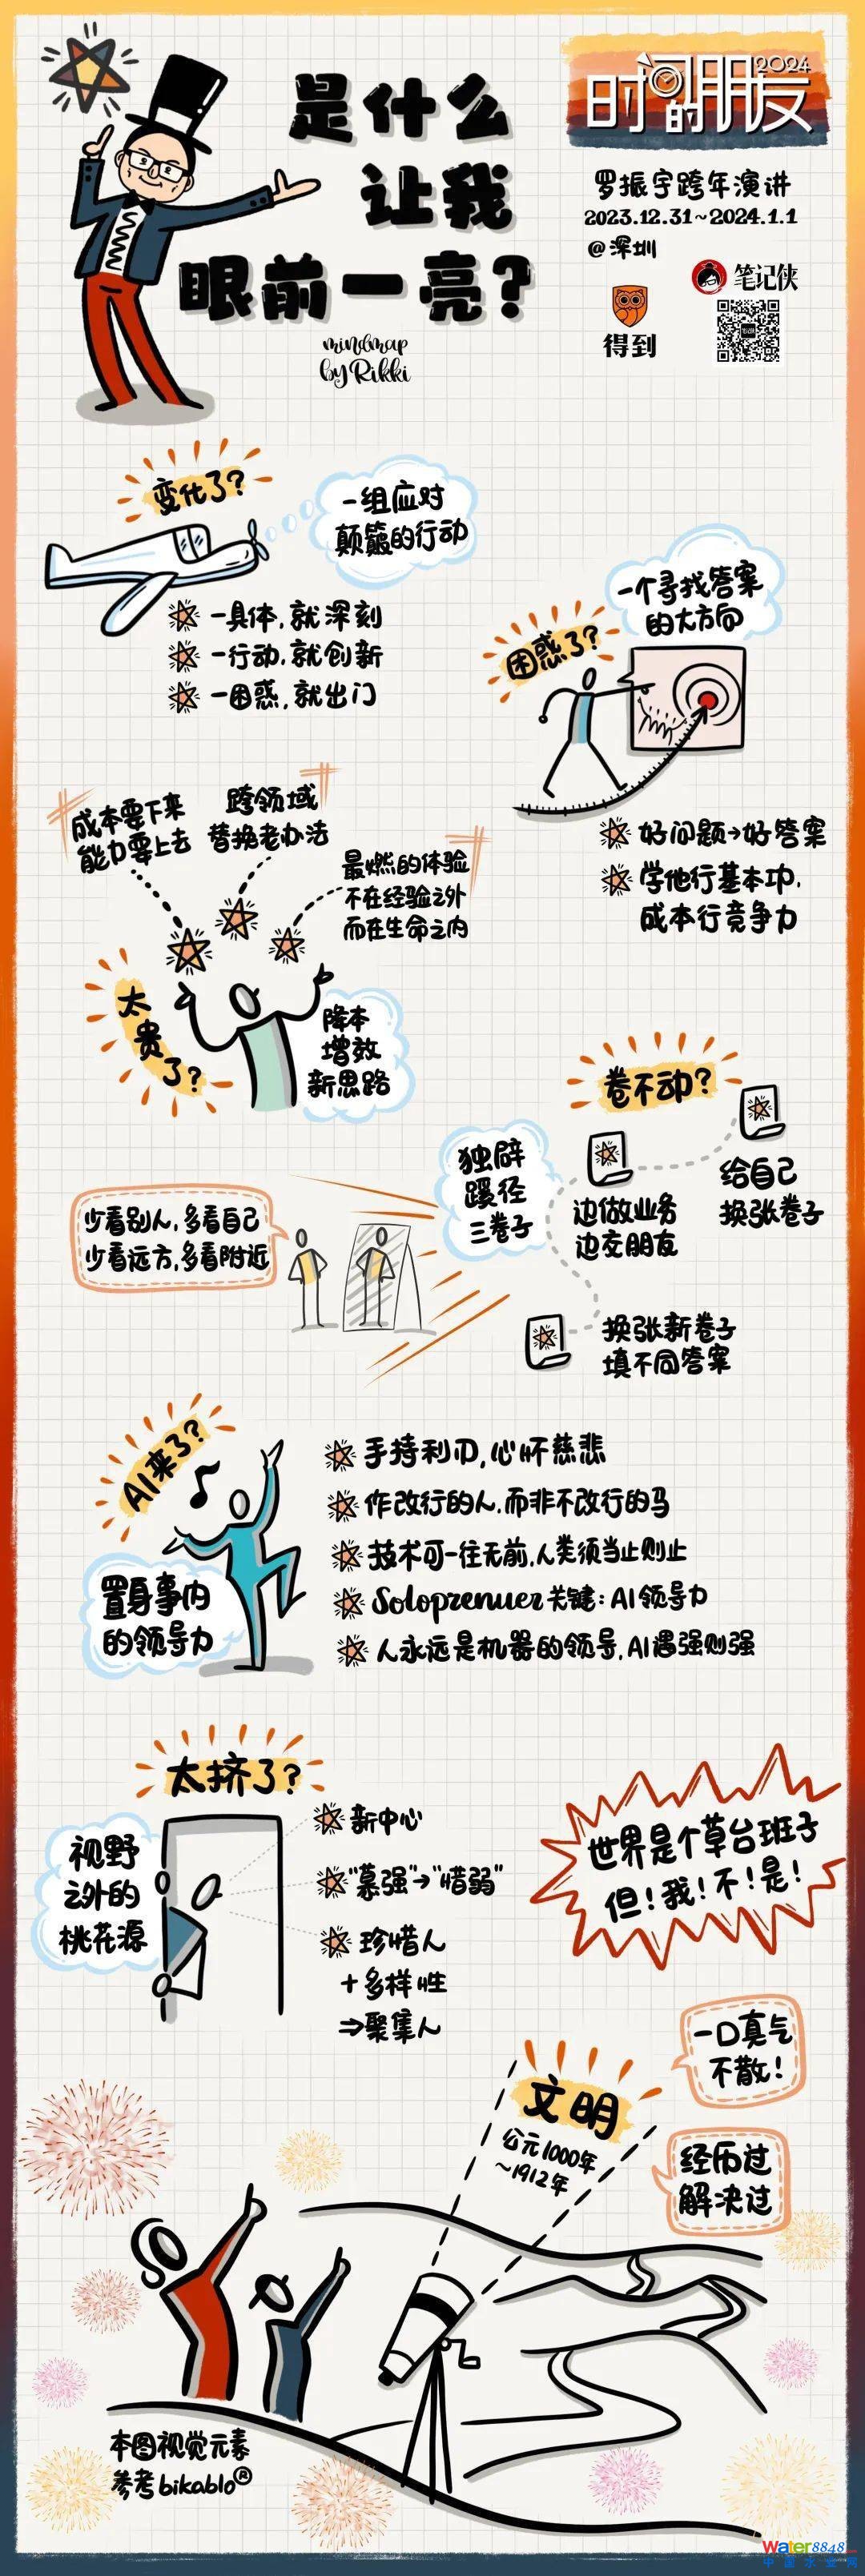 是什么
让我
眼前一亮?
mindmap
by Rikki
2024
时间的朋友
罗振宇跨年演讲
2023.12.31~2024.1.1
@深圳
得到
笔记侠
变化了?
一组应对
颠簸的行动
一具体,就深刻
一行动,就创新
一困惑,就出门
困惑了?
一个寻找答案
的大方向
好问题→好答案
学他行基本功,
成本行竞争力
成本要下来
能力要上去
跨领域
替换老办法
最燃的体验
不在经验之外
而在生命之内
太贵了?
降本
增效
新思路
卷不动?
独辟
蹊径
三卷子
给自己
换张卷子
边做业务
边交朋友
换张新卷子
填不同答案
少看别人,多看自己
少看远方,多看附近
AI来了?
置身事内
的领导力
手持利刃,心怀慈悲
作改行的人,而非不改行的马
技术可一往无前,人类须当止则止
Soloprenuer关键:AI领导力
人永远是机器的领导,AI遇强则强
太挤了?
视野
之外的
桃花源
新中心
"慕强"→"惜弱"
珍惜人
+多样性
⇒聚集人
世界是个草台班子
但!我!不!是!
文明
公元1000年
~1912年
一口真气
不散!
经历过
解决过
本图视觉元素
参考bikablo®
Water8848
中国水业网